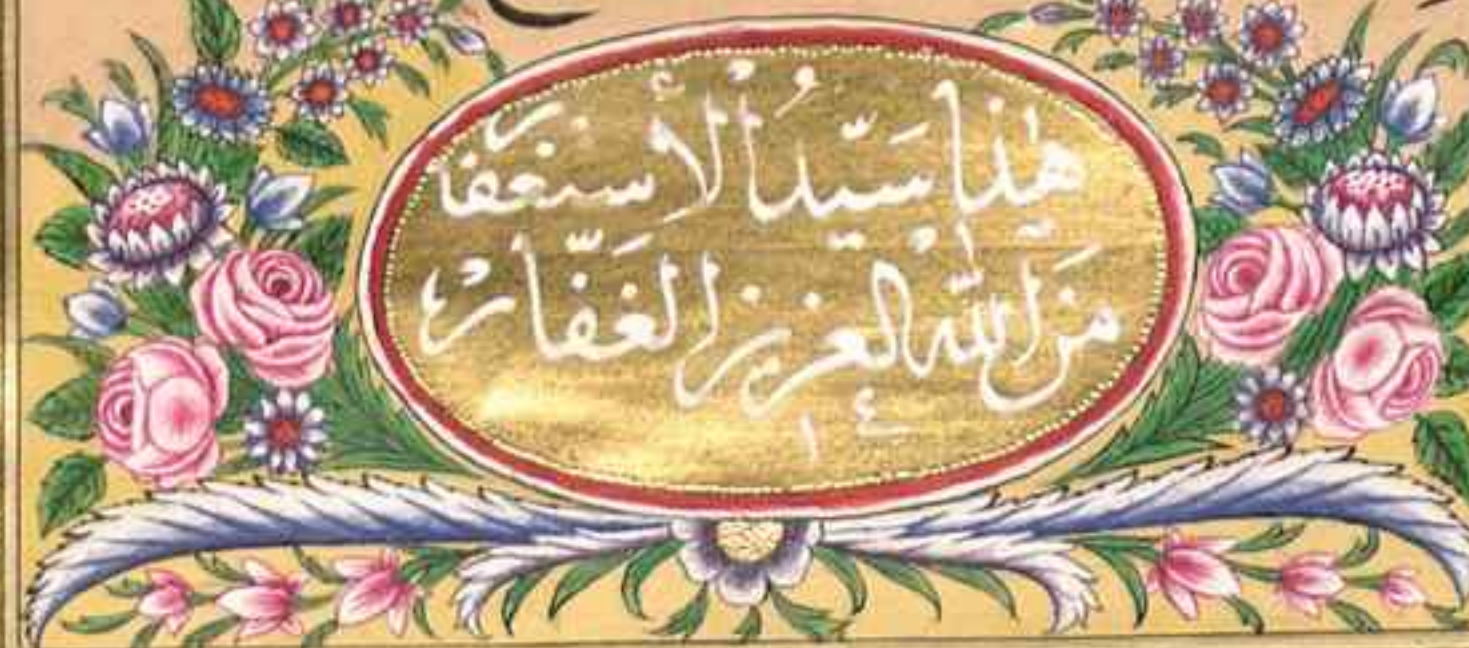 هٰذَا سَيِّدُ الْأَسْتِغْفَار
مَنَ اللّٰه الْعَزِيزِ الْغَفَّار